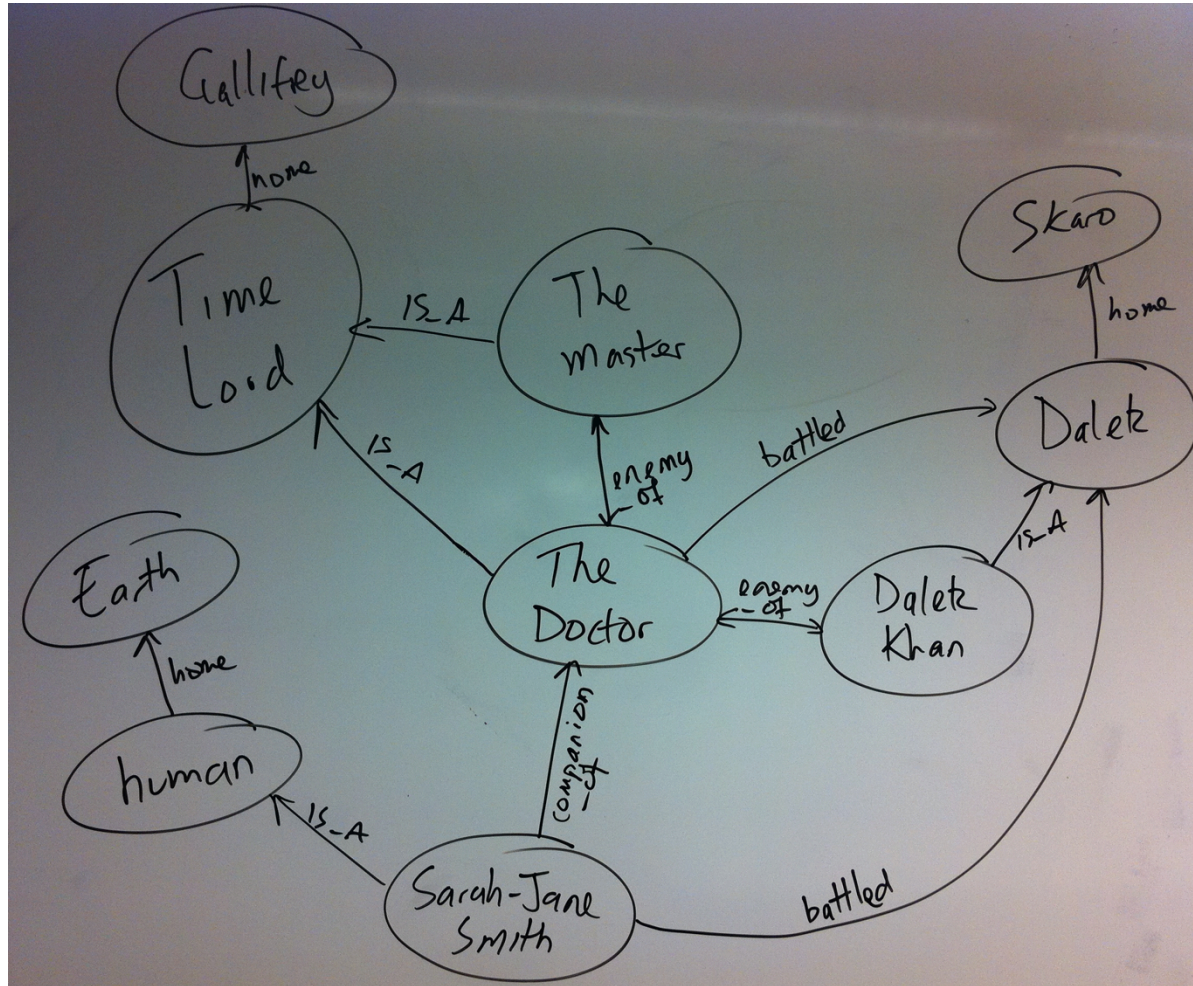 Gallifrey
home
Time
Lord
IS_A
The
master
Skaro
home
Dalek
IS_A
enemy
_of
battled
Earth
home
The
Doctor
enemy
_of
Dalek
Khan
IS_A
human
IS_A
companion
_of
Sarah-Jane
Smith
battled